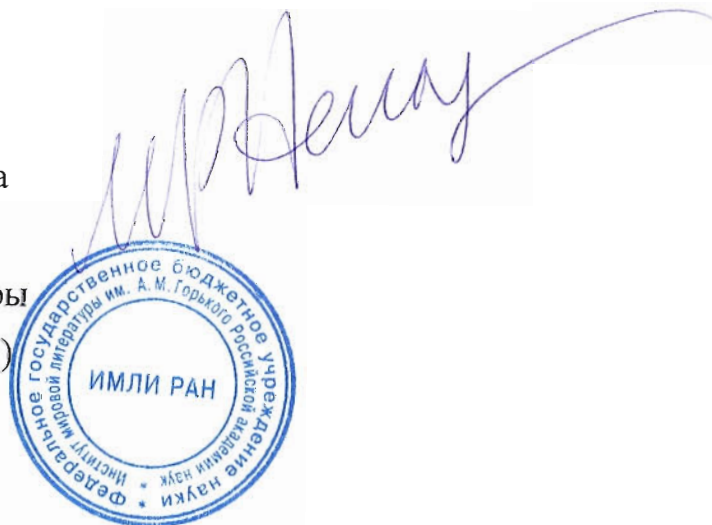 а
ры
)
Федеральное государственное бюджетное учреждение науки *
Институт мировой литературы им. А.М. Горького Российской академии наук *
ИМЛИ РАН